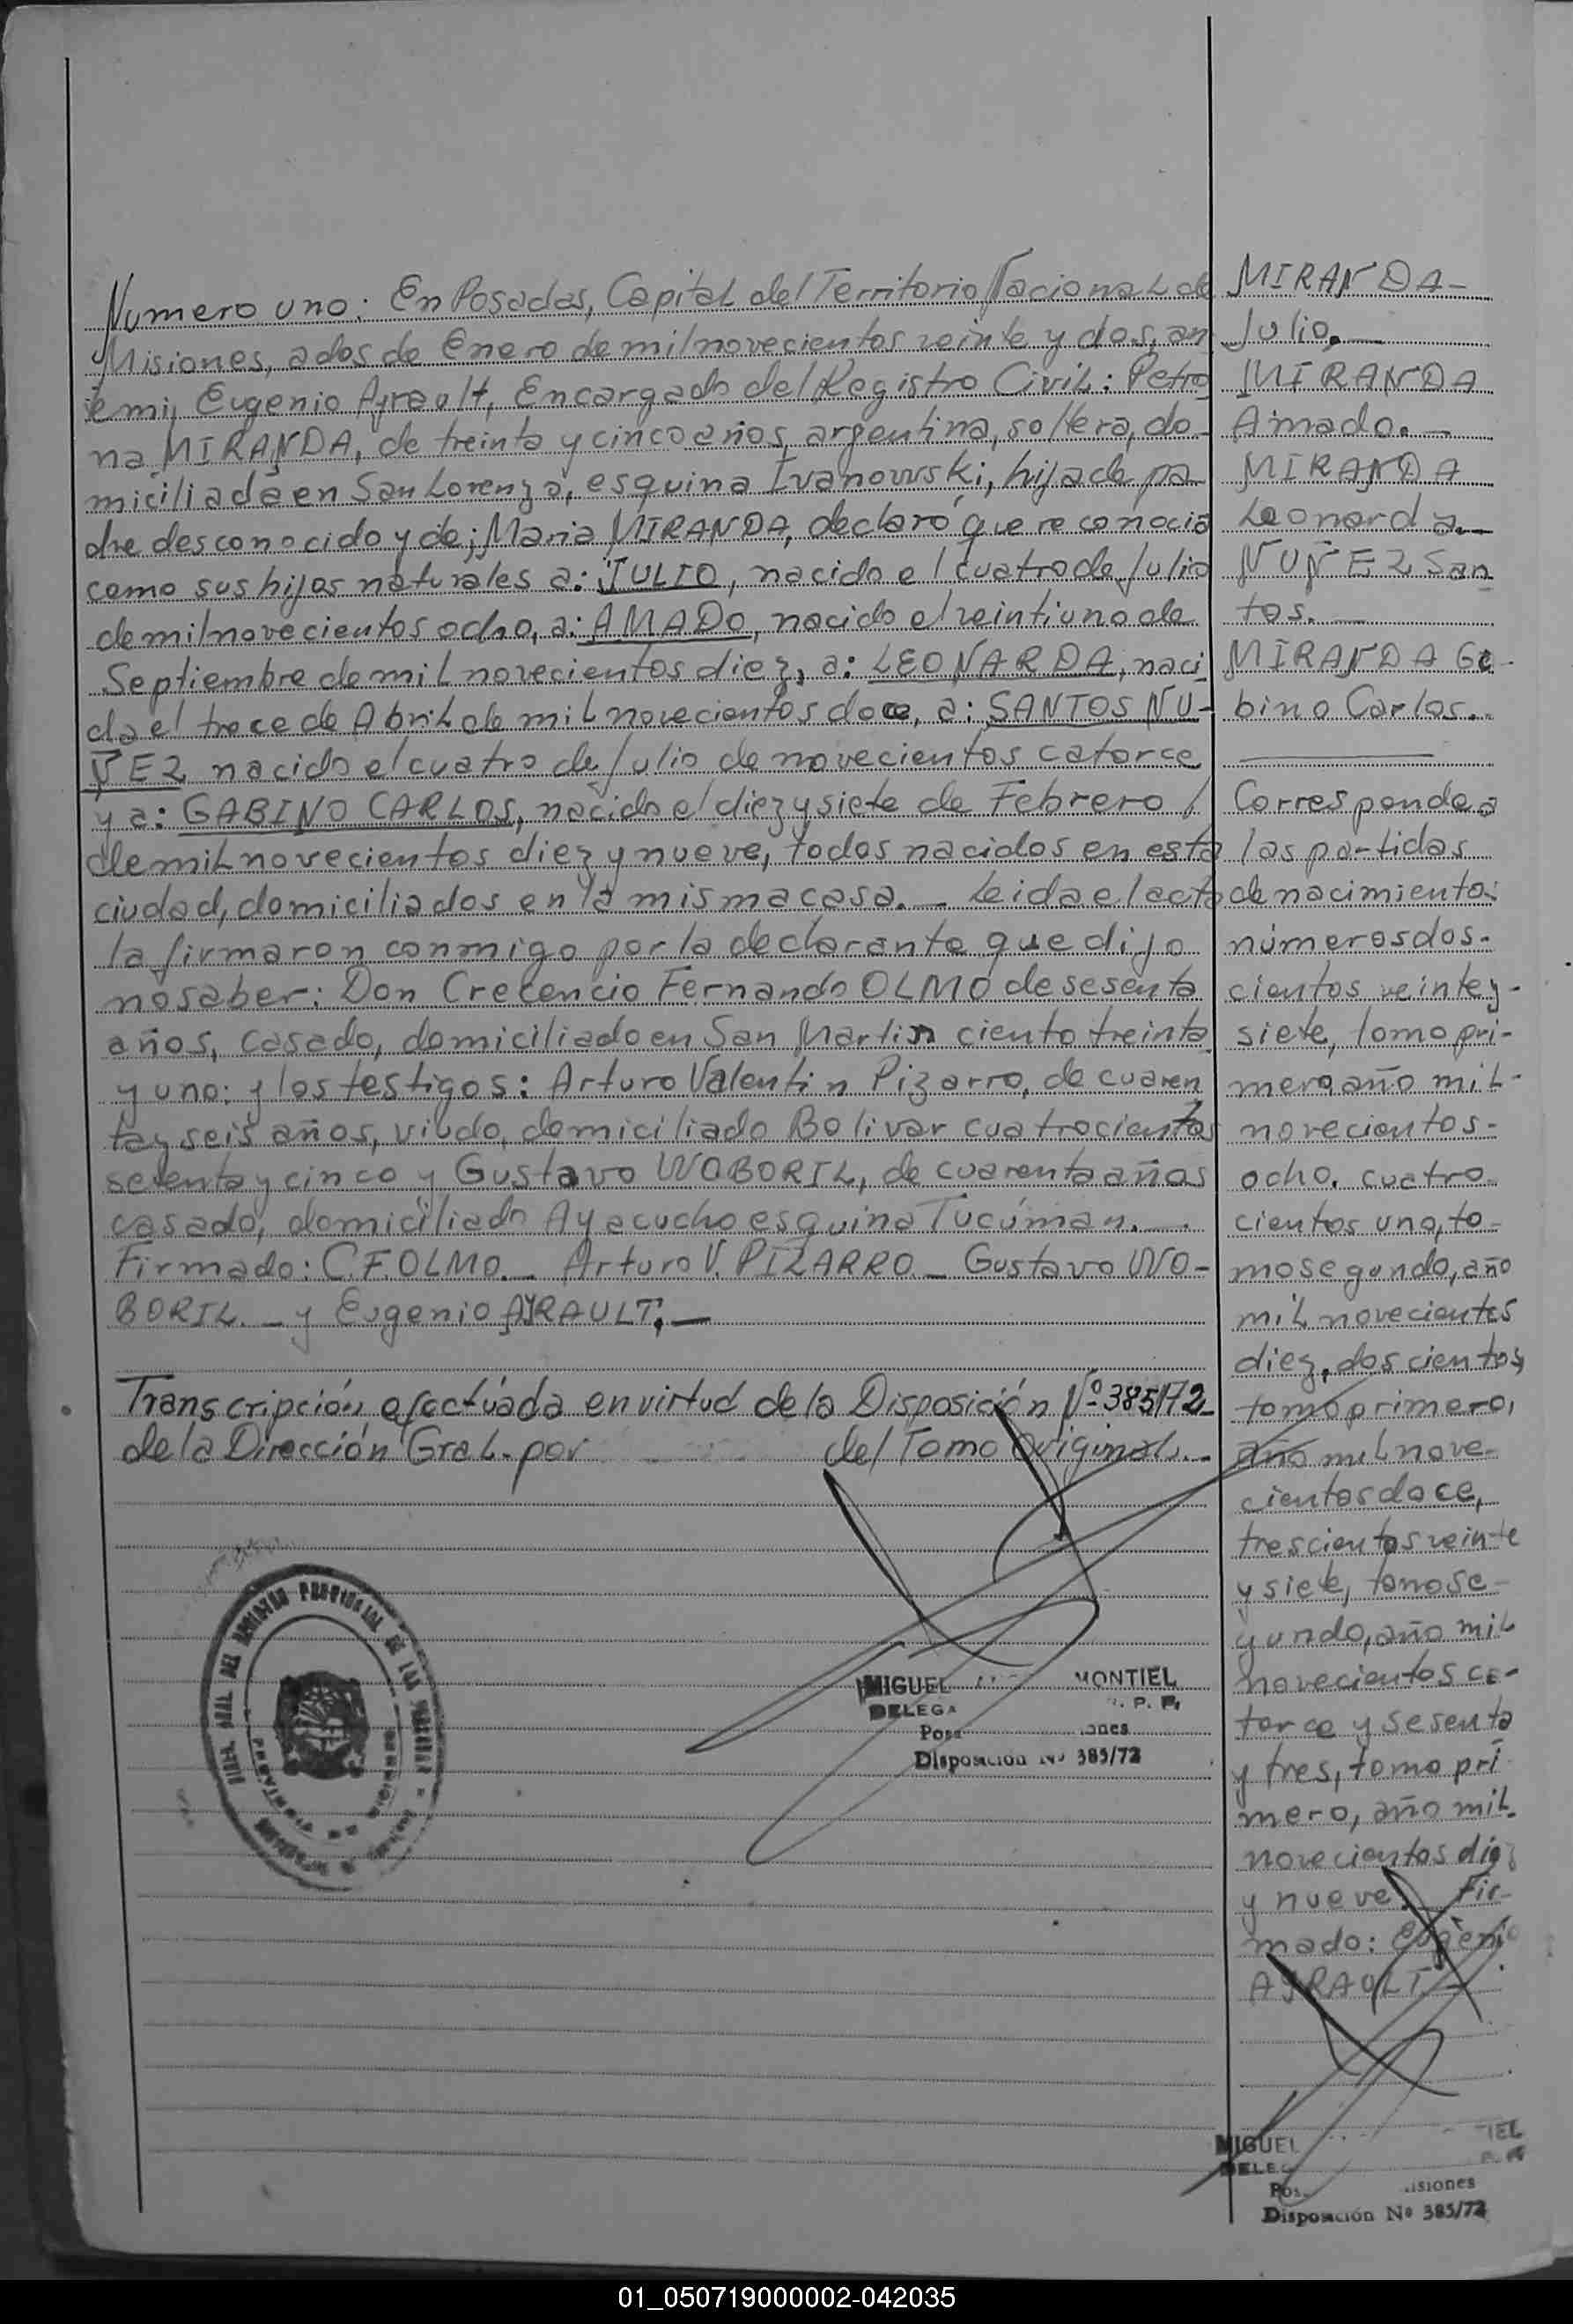 Numero uno: En Posadas, Capital del Territorio Nacional de
Misiones, a dos de Enero de mil novecientos veinte y dos, an
te mi, Eugenio Ayrault, Encargado del Registro Civil: Petro
na MIRANDA, de treinta y cinco años, argentina, soltera, do-
miciliada en San Lorenzo, esquina Ivanowski, hija de pa
dre desconocido y de; Maria MIRANDA, declaró que reconocia
como sus hijos naturales a: JULIO, nacido el cuatro de Julio
de mil novecientos ocho, a: AMADO, nacido el veintiuno de
Septiembre de mil novecientos diez, a: LEONARDA, naci
da el trece de Abril de mil novecientos doce, a: SANTOS NU-
ÑEZ nacido el cuatro de Julio de novecientos catorce
y a: GABINO CARLOS, nacido el diez y siete de Febrero /
de mil novecientos diez y nueve, todos nacidos en esta
ciudad, domiciliados en la misma casa. _ Leida el acta
la firmaron conmigo por la declarante que dijo
no saber: Don Crecencio Fernando OLMO de sesenta
años, casado, domiciliado en San Martin ciento treinta
y uno: y los testigos: Arturo Valentin Pizarro, de cuaren
ta y seis años, viudo, domiciliado Bolivar cuatrocientos
setenta y cinco y Gustavo WOBORIL, de cuarenta años
casado, domiciliado Ayacucho esquina Tucúman. _ .
Firmado: C.F. OLMO. _ Arturo V. PIZARRO _ Gustavo WO-
BORIL. _ y Eugenio AYRAULT. _
Transcripción efectúada en virtud de la Disposición Nº 385/72
de la Dirección Gral. por del Tomo Original. _
MIGUEL MONTIEL
DELEGA P. P.
Disposición Nº 385/72
MIRANDA _
Julio. _
MIRANDA
Amado. _
MIRANDA
Leonarda. _
NUÑEZ San
tos. _
MIRANDA Ga-
bino Carlos. _
Corresponde a
las partidas
de nacimiento:
números dos-
cientos veinte y-
siete, tomo pri-
mero, año mil-
novecientos-
ocho, cuatro-
cientos uno, to-
mo segundo, año
mil novecientos
diez, doscientos,
tomo primero,
año mil nove-
cientos doce,
trescientos veinte
y siete, tomo se-
gundo, año mil
novecientos ca-
torce y sesenta
y tres, tomo pri
mero, año mil
novecientos diez
y nueve. _ Fir-
mado: Eugenio
AYRAULT. _
MIGUEL
Disposición Nº 385/72
01_050719000002-042035